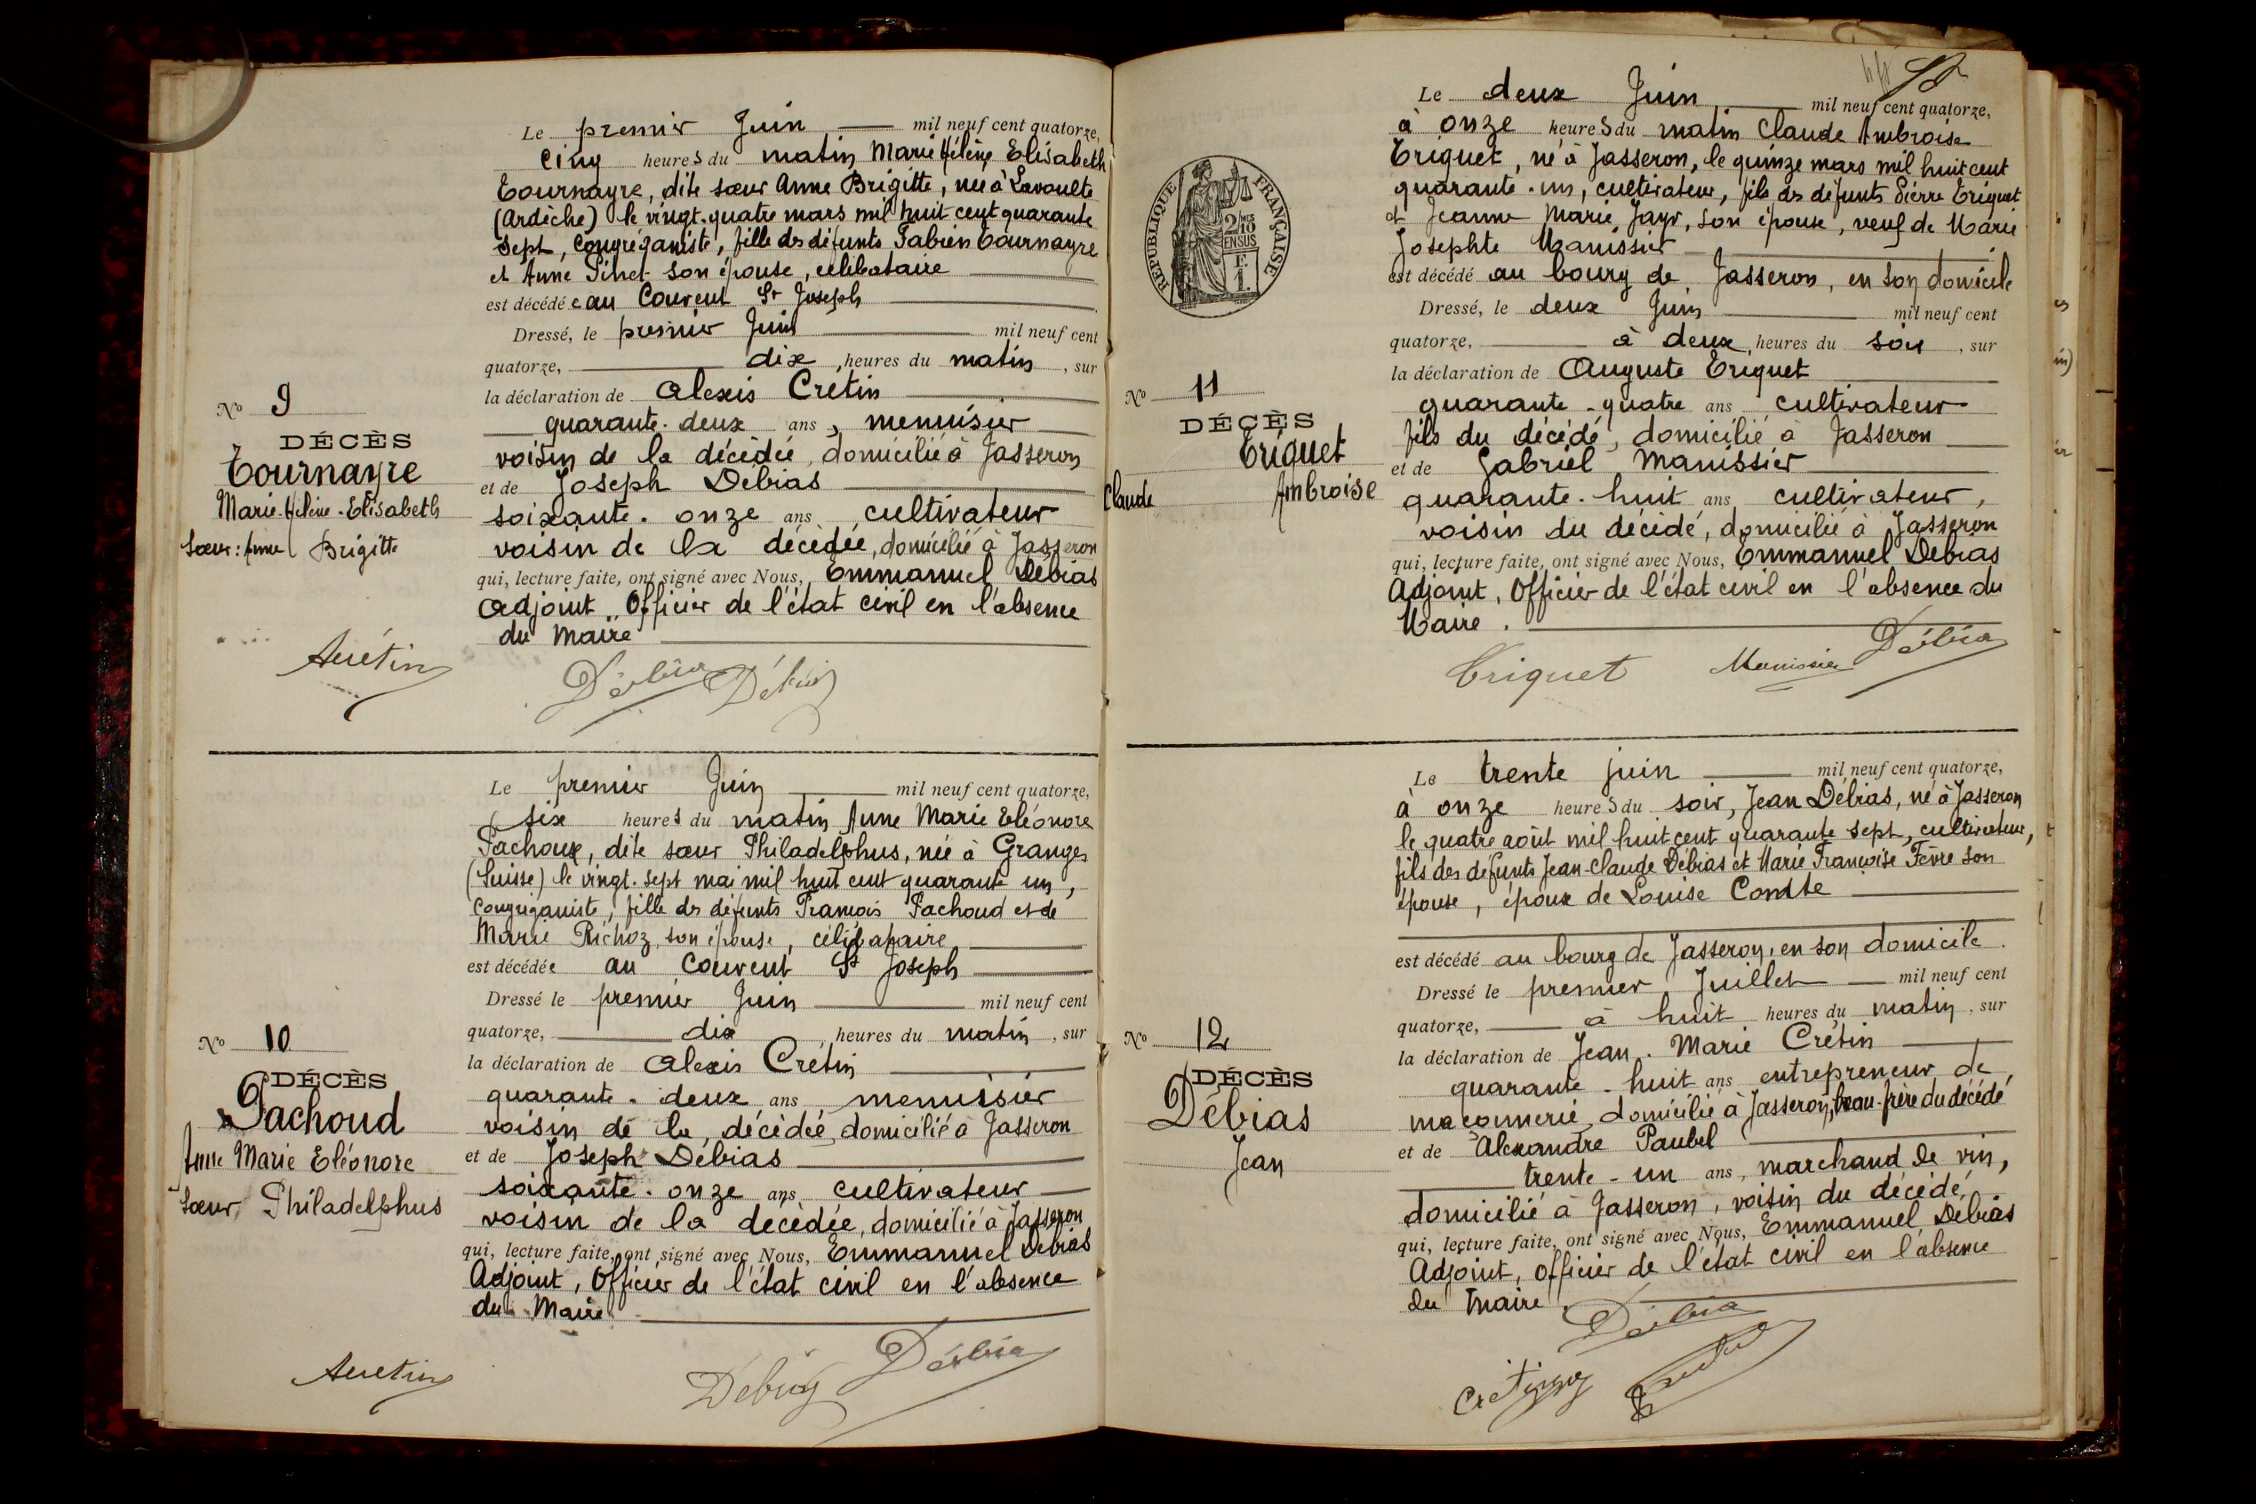 Le premier Juin mil neuf cent quatorze,
cinq heures du matin Marie Hélène Elisabeth
Tournayre, dite sœur Anne Brigitte, née à Lavoulte
(Ardèche) le vingt-quatre mars mil huit cent quarante
sept, congréganiste, fille des défunts Fabien Tournayre
et Anne Pinet son épouse, célibataire
est décédée au Couvent St Joseph
Dressé, le premier Juin mil neuf cent
quatorze, dix heures du matin, sur
la déclaration de Alexis Cretin
quarante-deux ans, menuisier
voisin de la décédée, domicilié à Jasseron
et de Joseph Débias
soixante-onze ans, cultivateur
voisin de la décédée, domicilié à Jasseron
qui, lecture faite, ont signé avec Nous, Emmanuel Débias
Adjoint, Officier de l'état civil en l'absence
du Maire
No 9
DÉCÈS
Tournayre
Marie-Hélène-Elisabeth
Sœur: Anne Brigitte
Acrétin Débias Débias
Le premier Juin mil neuf cent quatorze,
six heures du matin Anne Marie Eléonore
Pachoux, dite sœur Philadelphus, née à Granges
(Suisse) le vingt-sept mai mil huit cent quarante un,
congréganiste, fille des défunts François Pachoud et de
Marie Richoz son épouse, célibataire
est décédée au Couvent St Joseph
Dressé le premier Juin mil neuf cent
quatorze, dix heures du matin, sur
la déclaration de Alexis Cretin
quarante-deux ans menuisier
voisin de la décédée, domicilié à Jasseron
et de Joseph Débias
soixante-onze ans cultivateur
voisin de la décédée, domicilié à Jasseron
qui, lecture faite, ont signé avec Nous, Emmanuel Débias
Adjoint, Officier de l'état civil en l'absence
du Maire
No 10
DÉCÈS
Pachoud
Anne Marie Eléonore
Sœur, Philadelphus
Acretin Débias Débias
RÉPUBLIQUE FRANÇAISE
2/10 EN SUS
F. 1.
Le deux Juin mil neuf cent quatorze,
à onze heures du matin Claude Ambroise
Triquet, né à Jasseron, le quinze mars mil huit cent
quarante-un, cultivateur, fils des défunts Pierre Triquet
et Jeanne Marie Jayr, son épouse, veuf de Marie
Josephte Manissier
est décédé au bourg de Jasseron, en son domicile
Dressé, le deux Juin mil neuf cent
quatorze, à deux heures du soir, sur
la déclaration de Auguste Triquet
quarante-quatre ans cultivateur
fils du décédé, domicilié à Jasseron
et de Gabriel Manissier
quarante-huit ans cultivateur,
voisin du décédé, domicilié à Jasseron
qui, lecture faite, ont signé avec Nous, Emmanuel Débias
Adjoint, Officier de l'état civil en l'absence du
Maire.
No 11
DÉCÈS
Triquet
Claude Ambroise
Triquet Manissier Débias
Le trente juin mil neuf cent quatorze,
à onze heures du soir, Jean Débias, né à Jasseron
le quatre août mil huit cent quarante sept, cultivateur,
fils des défunts Jean-Claude Débias et Marie Françoise Fèvre son
épouse, époux de Louise Comte
est décédé au bourg de Jasseron, en son domicile.
Dressé le premier Juillet mil neuf cent
quatorze, à huit heures du matin, sur
la déclaration de Jean-Marie Crétin
quarante-huit ans entrepreneur de
maçonnerie domicilié à Jasseron, beau-frère du décédé
et de Alexandre Paubel
trente-un ans, marchand de vin,
domicilié à Jasseron, voisin du décédé,
qui, lecture faite, ont signé avec Nous, Emmanuel Débias
Adjoint, officier de l'état civil en l'absence
du Maire.
No 12
DÉCÈS
Débias
Jean
Débias